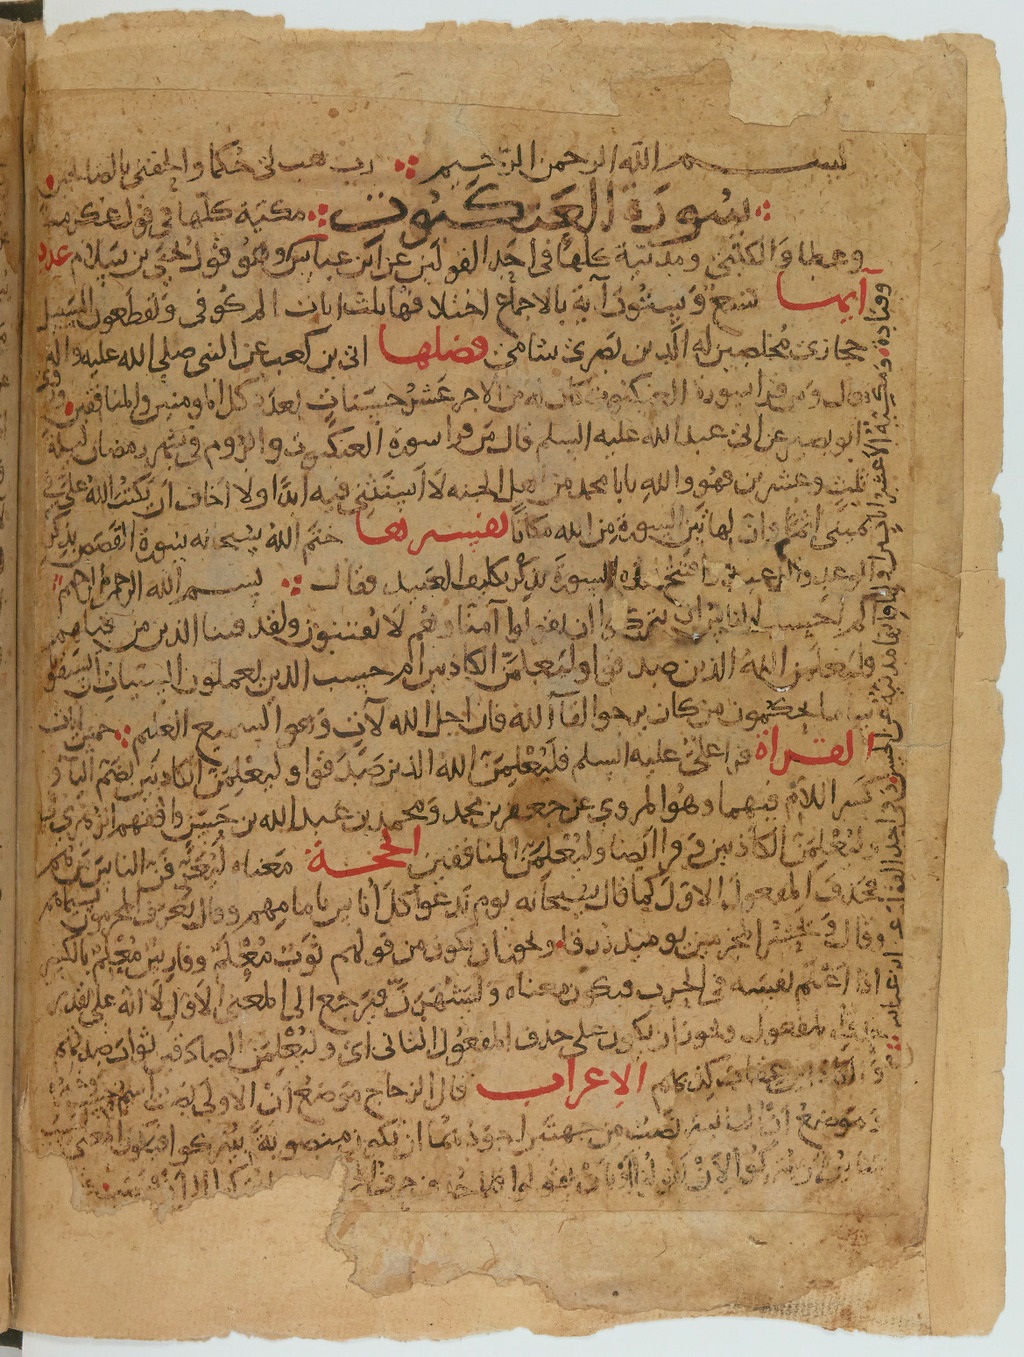 بسم الله الرحمن الرحيم ∴ رب هب لي حكما والحقني بالصالحين
∴ سورة العنكبوت ∴ مكية كلها في قول عكرمة
وعطا والكلبي ومدنية كلها في احد القولين عن ابن عباس وهو قول يحيى بن سلام عدد
آيها تسع وستون آية بالاجماع اختلافها ثلث ايات الم كوفي وتقطعون السبيل
حجازي مخلصين له الدين بصري شامي فضلها ابي بن كعب عن النبي صلى الله عليه واله
قال ومن قرا سورة العنكبوت كان له من الاجر عشر حسنات بعدد كل المومنين والمنافقين وروى
ابو بصير عن ابي عبد الله عليه السلم قال من قرا سورة العنكبوت والروم في شهر رمضان ليلة
ثلث وعشرين فهو والله يابا محمد من اهل الجنه لا استثني فيه ابدا ولا اخاف ان يكتب الله علي في
يميني اثما وان لهاتين السورتين من الله مكانا تفسيرها ختم الله سبحانه سورة القصص بذكر
الوعد والوعيد وافتتح هذه السورة بذكر تكليف العبيد فقال ∴ بسم الله الرحمن الرحيم
الم احسب الناس ان يتركوا ان يقولوا آمنا وهم لا يفتنون ولقد فتنا الذين من قبلهم
فليعلمن الله الذين صدقوا وليعلمن الكاذبين ام حسب الذين يعملون السيئات ان يسبقونا
سا ما يحكمون من كان يرجوا لقا الله فان اجل الله لآت وهو السميع العليم ∴ خمس ايات
القراة قرا علي عليه السلم فليعلمن الله الذين صدقوا وليعلمن الكاذبين بضم اليا و
كسر اللام فيهما وهو المروي عن جعفر بن محمد ومحمد بن عبد الله بن حسن وافقهم الزهري في
وليعلمن الكاذبين وقرا ايضا وليعلمن المنافقين الحجة معناه ليعرفن الناس من هم
فحذف المفعول الاول كما قال سبحانه يوم ندعوا كل أناس بامامهم وقال يعرف المجرمون بسيماهم
وقال ونحشر المجرمين يوميذ زرقا ويجوز ان يكون من قولهم ثوب معلم وفارس معلم بالكسر
اذا اعلم نفسه في الحرب فيكون معناه وليشهرن فيرجع الى المعنى الاول لا انه على تقدير
حذف المفعول ويجوز ان يكون على حذف المفعول الثاني اي وليعلمن الصادقين ثواب صدقهم
والكاذبين عقاب كذبهم الاعراب قال الزجاج موضع ان الاولى نصب اسم حسب وخبره
وموضع ان الثانية نصب من جهتين اجودهما ان تكون منصوبة بيتركوا فيكون المعنى
وقتاده ومكية الا عشر ايات من اولها فانها مدنية عن الحسن في احد القولين عن ابن عباس